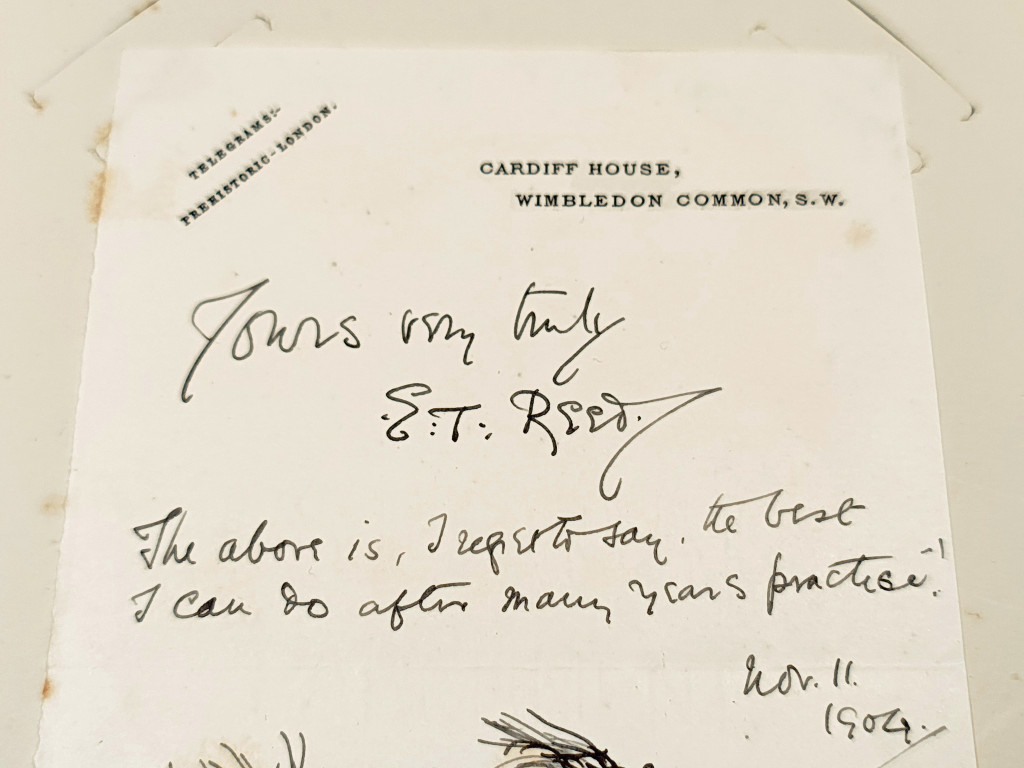 TELEGRAMS:-
PREHISTORIC-LONDON.
CARDIFF HOUSE,
WIMBLEDON COMMON, S.W.
Yours very truly
E.T. Reed.
The above is, I regret to say, the best
I can do after many years practise!
Nov. 11.
1904.